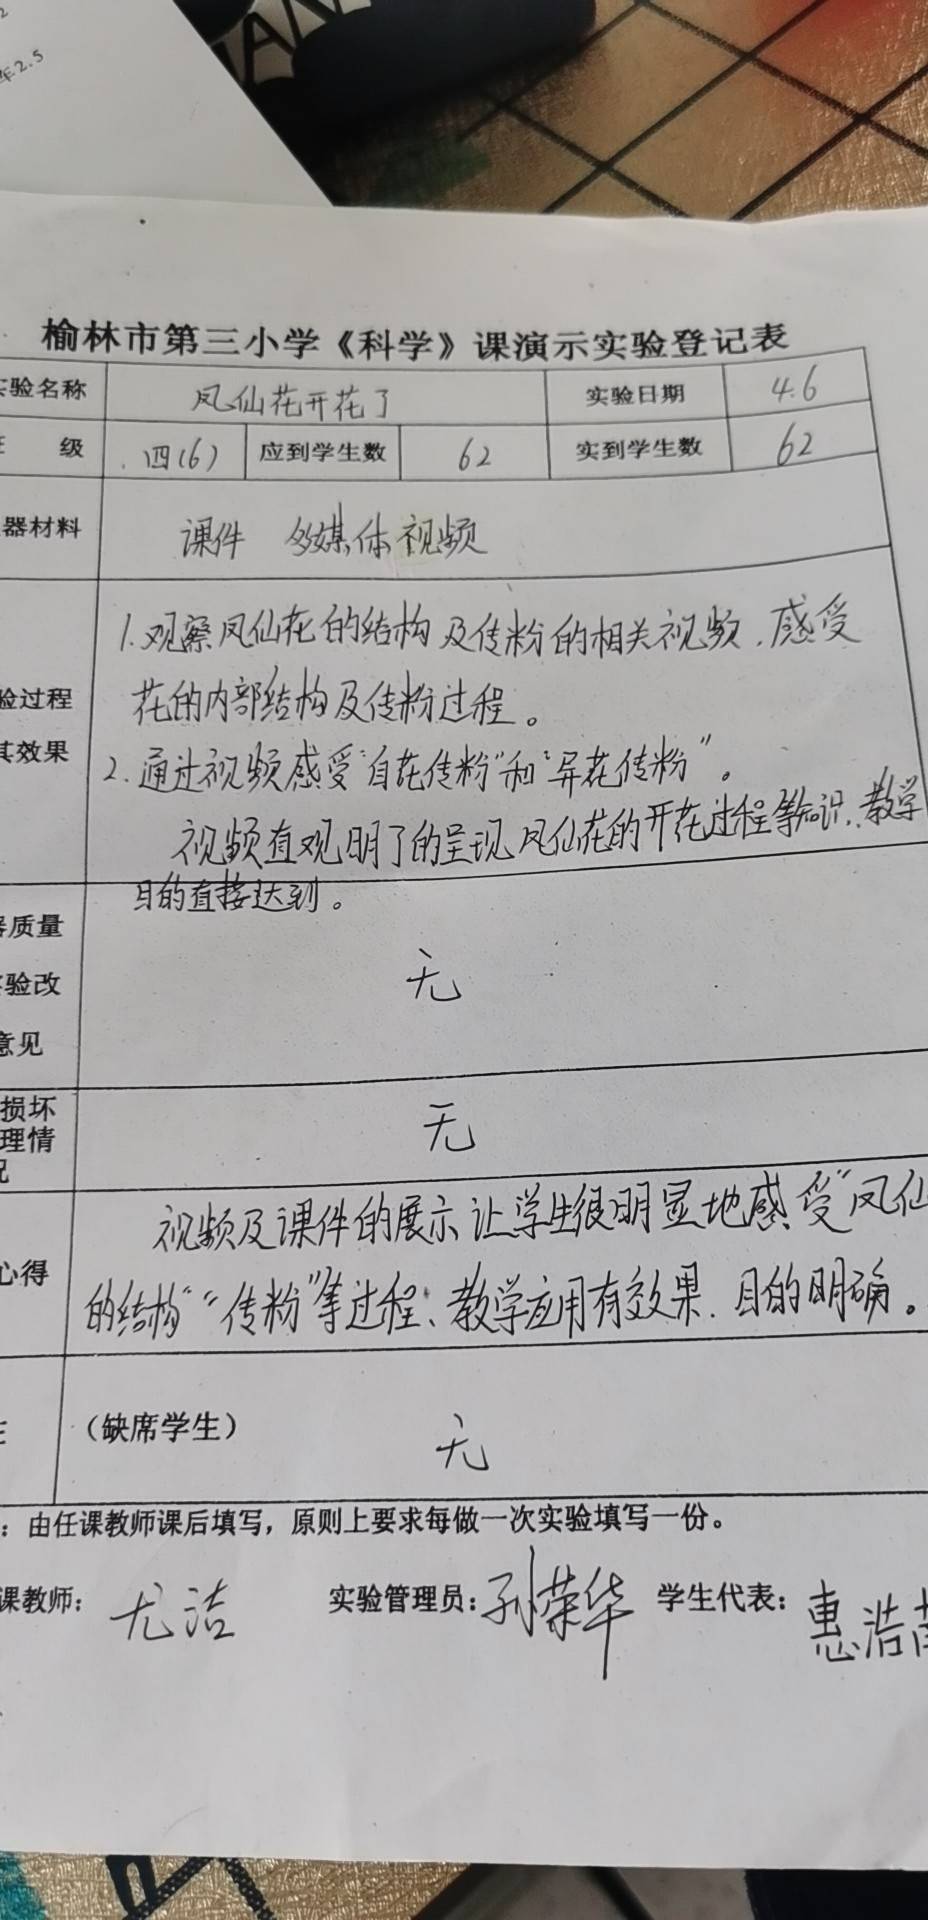 年2.5
榆林市第三小学《科学》课演示实验登记表
验名称 凤仙花开花了 实验日期 4.6
级 四(6) 应到学生数 62 实到学生数 62
器材料 课件 多媒体视频
1.观察凤仙花的结构及传粉的相关视频,感受
验过程 花的内部结构及传粉过程。
其效果 2.通过视频感受“自花传粉”和“异花传粉”。
视频直观明了的呈现凤仙花的开花过程等知识、教学
目的直接达到。
质量
验改 无
意见
损坏
理情 无
视频及课件的展示让学生很明显地感受“凤仙
心得 的结构”“传粉”等过程、教学应用有效果.目的明确。
(缺席学生) 无
:由任课教师课后填写,原则上要求每做一次实验填写一份。
课教师: 尤洁 实验管理员: 孙荣华 学生代表: 惠浩